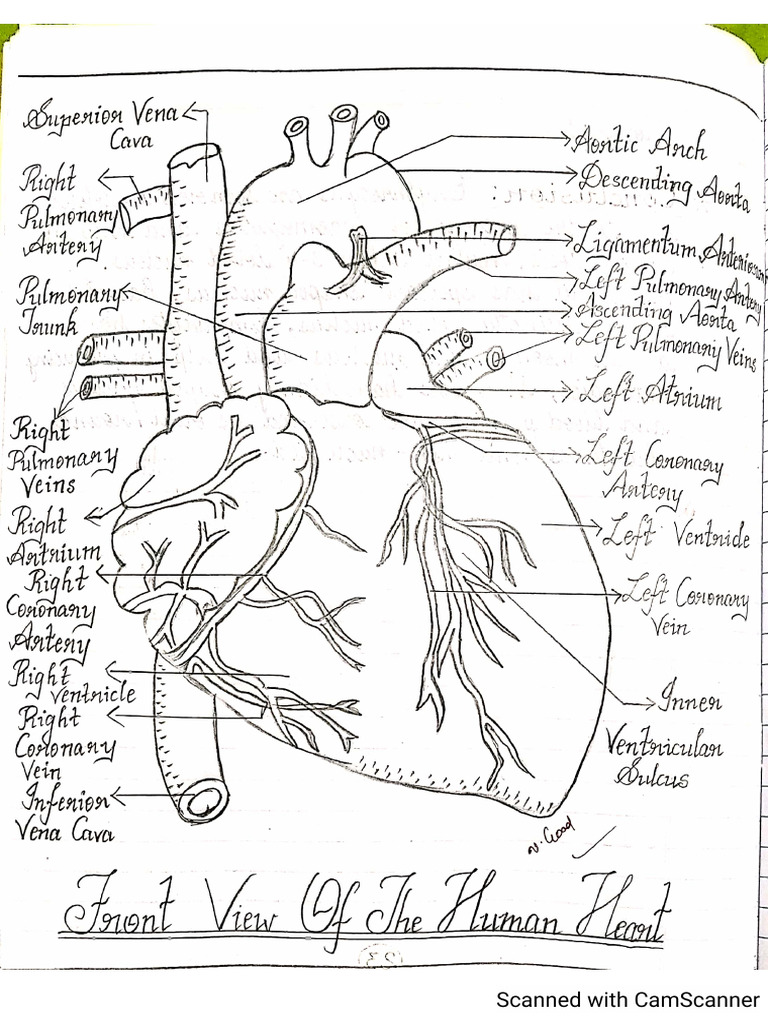 Superior Vena
Cava
Right
Pulmonary
Artery
Pulmonary
Trunk
Right
Pulmonary
Veins
Right
Artrium
Right
Coronary
Artery
Right
Ventricle
Right
Coronary
Vein
Inferior
Vena Cava
Aortic Arch
Descending Aorta
Ligamentum Arteriosum
Left Pulmonary Artery
Ascending Aorta
Left Pulmonary Veins
Left Atrium
Left Coronary
Artery
Left Ventricle
Left Coronary
Vein
Inner
Ventricular
Sulcus
V. Good
Front View Of The Human Heart
Scanned with CamScanner